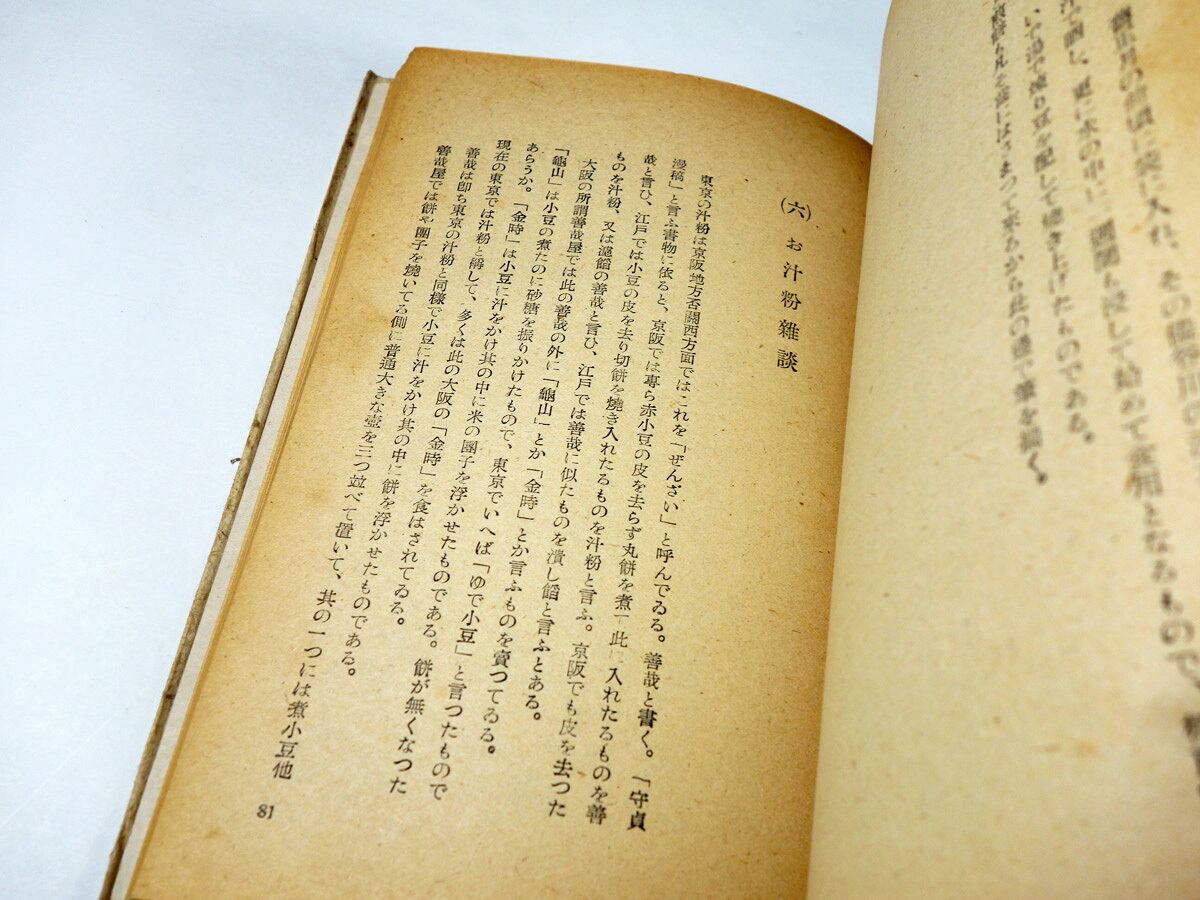 に入れ、その
更に水の中に一週間も浸して始めて食用となるもので、
いて湯で煉り豆を配して焼き上げたものである。
から此の邊で筆を擱く。
(六) お汁粉雜談
東京の汁粉は京阪地方否關西方面ではこれを「ぜんざい」と呼んでゐる。善哉と書く。「守貞
漫稿」と言ふ書物に依ると、京阪では専ら赤小豆の皮を去らず丸餅を煮 此 入れたるものを善
哉と言ひ、江戸では小豆の皮を去り切餅を燒き入れたるものを汁粉と言ふ。京阪でも皮を去つた
ものを汁粉、又は濾餡の善哉と言ひ、江戸では善哉に似たものを潰し餡と言ふとある。
大阪の所謂善哉屋では此の善哉の外に「龜山」とか「金時」とか言ふものを賣つてゐる。
「龜山」は小豆の煮たのに砂糖を振りかけたもので、東京でいへば「ゆで小豆」と言つたもので
あらうか。「金時」は小豆に汁をかけ其の中に米の團子を浮かせたものである。餅が無くなつた
現在の東京では汁粉と稱して、多くは此の大阪の「金時」を食はされてゐる。
善哉は卽ち東京の汁粉と同樣で小豆に汁をかけ其の中に餅を浮かせたものである。
善哉屋では餅や團子を燒いてる側に普通大きな壺を三つ竝べて置いて、其の一つには煮小豆他
81